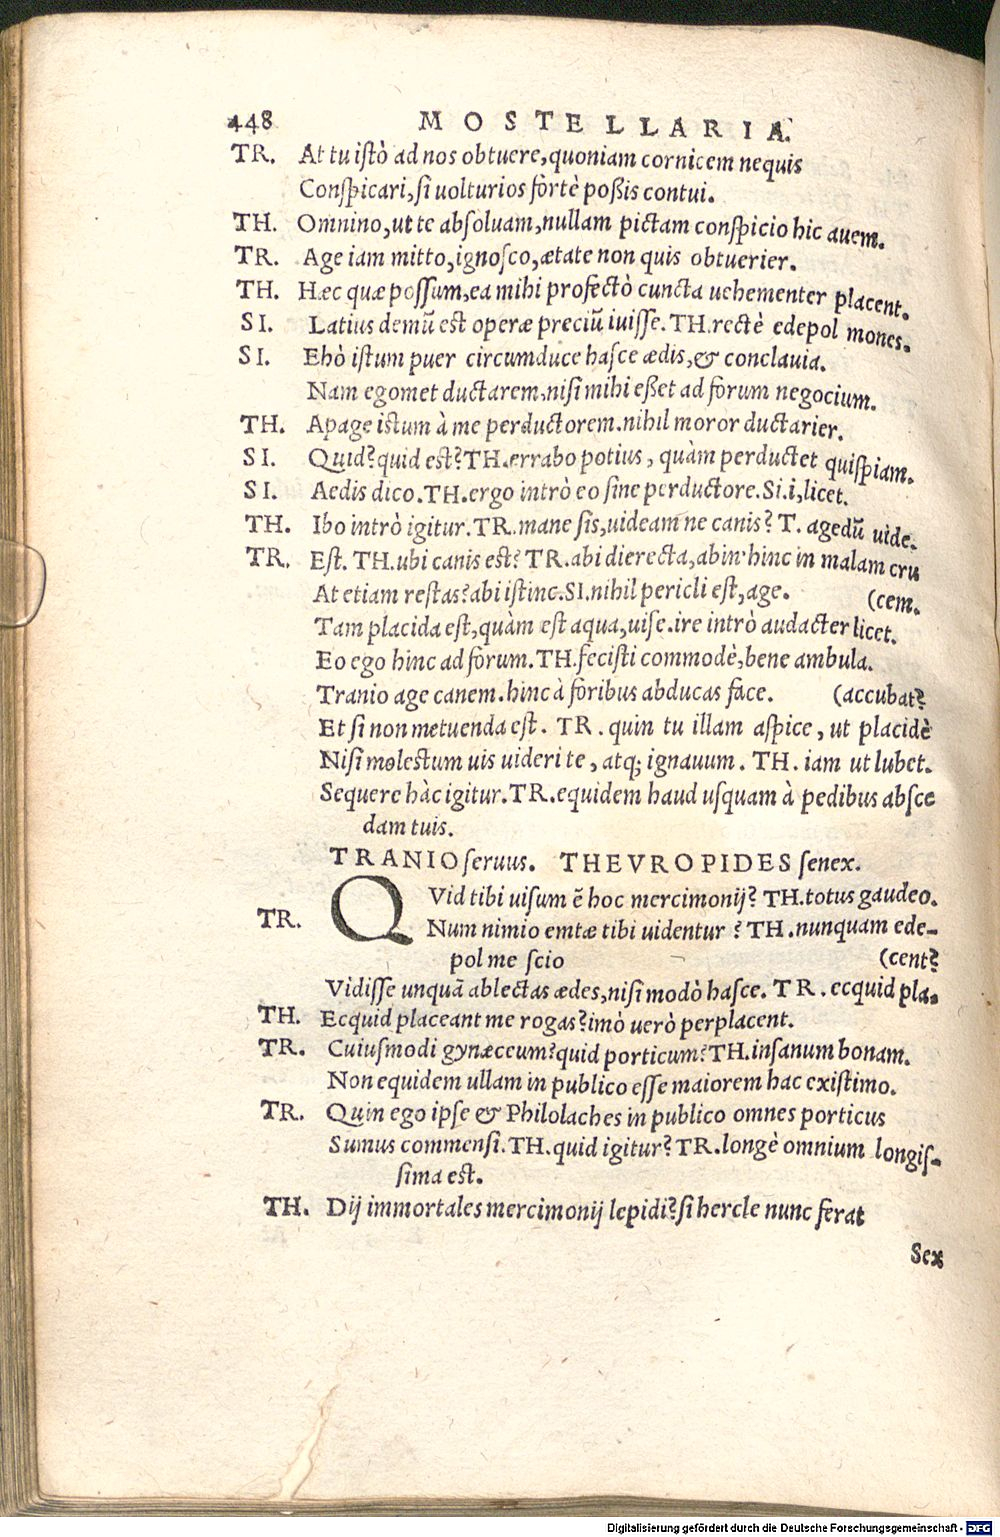 448 MOSTELLARIA.
TR. At tu istò ad nos obtuere, quoniam cornicem nequis
Conspicari, si uolturios fòrtè poßis contui.
TH. Omnino, ut te absoluam, nullam pictam conspicio hic auem.
TR. Age iam mitto, ignosco, ætate non quis obtuerier.
TH. Hæc quæ possum, ea mihi profectò cuncta uehementer placent.
SI. Latius demũ est operæ preciũ iuisse. TH. rectè edepol mones.
SI. Ehò istum puer circumduce hasce ædis, & conclauia.
Nam egomet ductarem, nisi mihi eßet ad forum negocium.
TH. Apage istum à me perductorem. nihil moror ductarier.
SI. Quid? quid est? TH. errabo potius, quàm perductet quispiam.
SI. Aedis dico. TH. ergo intrò eo sine perductore. Si. i, licet.
TH. Ibo intrò igitur. TR. mane sis, uideam ne canis? T. agedũ uide.
TR. Est. TH. ubi canis est? TR. abi dierecta, abin' hinc in malam cru
At etiam restas? abi istinc. SI. nihil pericli est, age. (cem.
Tam placida est, quàm est aqua, uise. ire intrò audacter licet.
Eo ego hinc ad forum. TH. fecisti commodè, bene ambula.
Tranio age canem. hinc à foribus abducas face. (accubat?
Et si non metuenda est. TR. quin tu illam aspice, ut placidè
Nisi molestum uis uideri te, atq; ignauum. TH. iam ut lubet.
Sequere hàc igitur. TR. equidem haud usquam à pedibus absce
dam tuis.
TRANIO seruus. THEVROPIDES senex.
TR. QVid tibi uisum ẽ hoc mercimonij? TH. totus gaudeo.
Num nimio emtæ tibi uidentur? TH. nunquam ede-
pol me scio (cent?
Vidisse unquã ablectas ædes, nisi modò hasce. TR. ecquid pla-
TH. Ecquid placeant me rogas? imò uerò perplacent.
TR. Cuiusmodi gynæceum? quid porticum? TH. insanum bonam.
Non equidem ullam in publico esse maiorem hac existimo.
TR. Quin ego ipse & Philolaches in publico omnes porticus
Sumus commensi. TH. quid igitur? TR. longè omnium longis-
sima est.
TH. Dij immortales mercimonij lepidi? si hercle nunc ferat
Sex
Digitalisierung gefördert durch die Deutsche Forschungsgemeinschaft - DFG